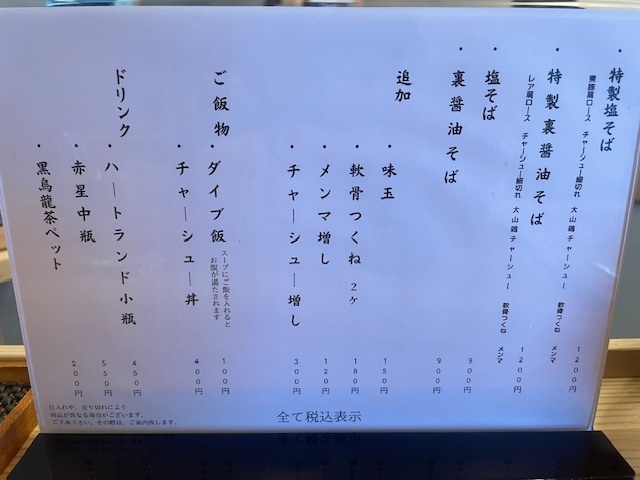 ・特製塩そば
豚肩ロース チャーシュー細切れ 大山鶏チャーシュー 軟骨つくね メンマ
1200円
・特製裏醤油そば
レア肩ロース チャーシュー細切れ 大山鶏チャーシュー 軟骨つくね メンマ
1200円
・塩そば 900円
・裏醤油そば 900円
追加
・味玉 150円
・軟骨つくね 2ケ 180円
・メンマ増し 120円
・チャーシュー増し 300円
ご飯物
・ダイブ飯 100円
スープにご飯を入れると
お腹が満たされます
・チャーシュー丼 400円
ドリンク
・ハートランド小瓶 450円
・赤星中瓶 550円
・黒烏龍茶ペット 200円
仕入れや、売り切れにより
商品が異なる場合がございます。
ご了承下さい。その際は、ご案内致します。
全て税込表示